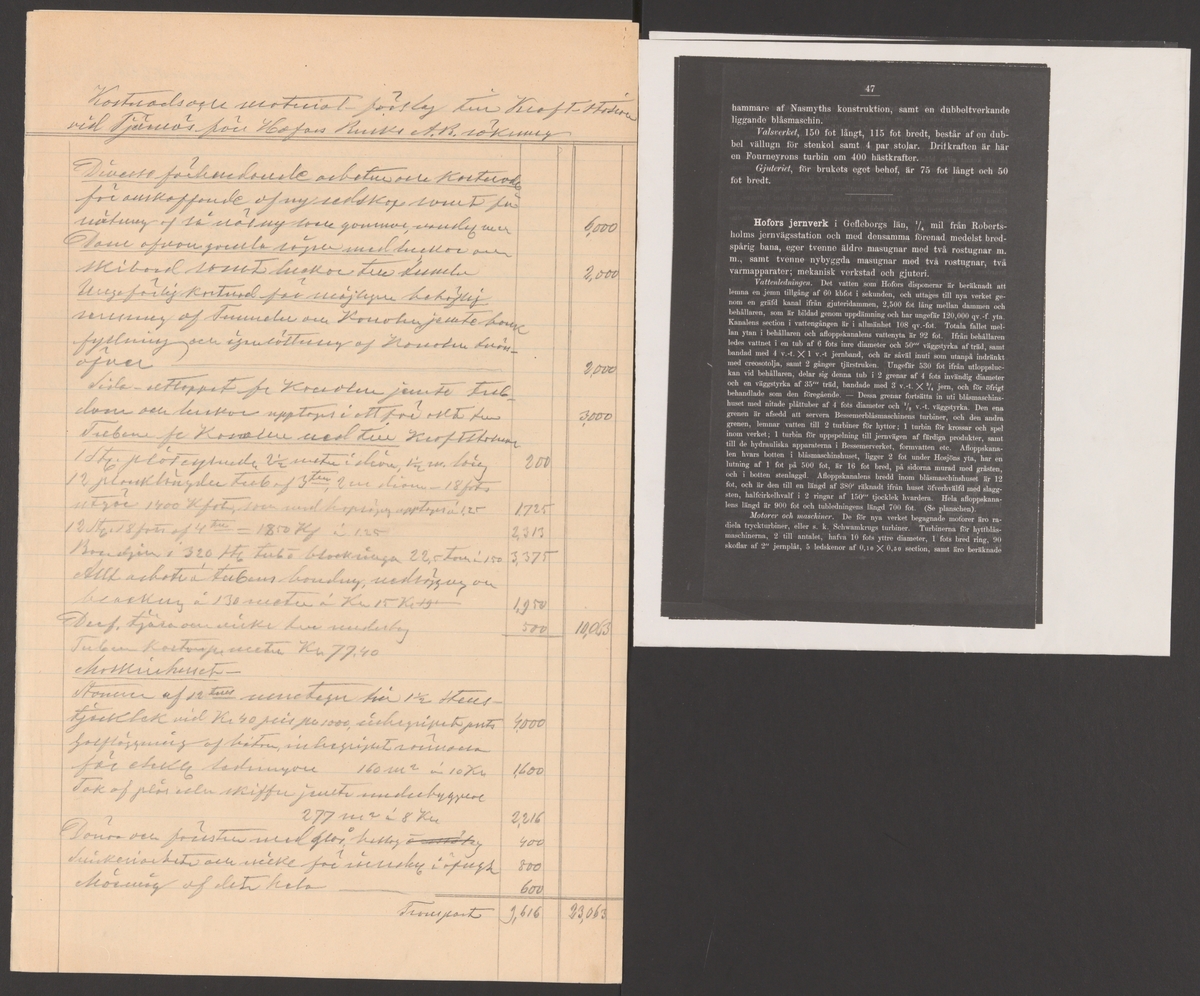 Kostnads och material-förslag till Kraft-station
vid Tjärnäs för Hofors Bruks A.B. räkning
Diverse förberedande arbeten och kostnader
för anskaffande af ny redskap samt för
af nu 6,000
Dam ofvan gamla sågen med luckor och
skibord samt luckor till tunneln 2,000
Ungefärlig kostnad för möjligen behöflig
rensning af Tunneln och Kanalen jemte
fyllning och af Kanalen
öfver 2,000
utloppet fr Kanalen jemte
dam och luckor upptages i ett för allt till 3,000
Tuben fr Kanalen ned till Kraftstation
1 St. plåtcylinder 2½ meter i diam, 1½ m. lång 200
12 tub af 3 tum, 2 m diam - 18 fots
1400 Kfot, som med upptages à 1,25 1725
12 St. 18 fots af 4 tum = 1850 Kf à 1.25 2,313
Bandjern i 320 St. tub 22,5 ton à 150 3,375
Allt arbete å tubens bandning, nedläggning och
à 130 meter à Kr 15 1,950
Dref, tjära och virke till underlag 500 10,063
Tuben kostar pr meter Kr 77,40
Maskinhuset -
Stommen af 12 tums murtegel till 1½ stens
tjocklek vid Kr 40 pris pr 1000, inberäknadt puts 4,000
Golfläggning af beton, inberäknadt
för 160 m² à 10 Kr 1,600
Tak af plåt eller skiffer jemte underbyggnad
277 m² à 8 Kr 2,216
Dörrar och fönster med glas, beslag 400
Snickeriarbete och virke för inredning i öfrigt 800
Målning af det hela 600
Transport 9,616 23,063
47
hammare af Nasmyths konstruktion, samt en dubbeltverkande
liggande blåsmaschin.
Valsverket, 150 fot långt, 115 fot bredt, består af en dub-
bel vällugn för stenkol samt 4 par stolar. Drifkraften är här
en Fourneyrons turbin om 400 hästkrafter.
Gjuteriet, för brukets eget behof, är 75 fot långt och 50
fot bredt.
Hofors jernverk i Gefleborgs län, 1/4 mil från Roberts-
holms jernvägsstation och med densamma förenad medelst bred-
spårig bana, eger tvenne äldre masugnar med två rostugnar m.
m., samt tvenne nybyggda masugnar med två rostugnar, två
varmapparater; mekanisk verkstad och gjuteri.
Vattenledningen. Det vatten som Hofors disponerar är beräknadt att
lemna en jemn tillgång af 60 kbfot i sekunden, och uttages till nya verket ge-
nom en gräfd kanal ifrån gjuteridammen, 2,500 fot lång mellan dammen och
behållaren, som är bildad genom uppdämning och har ungefär 120,000 qv.-f. yta.
Kanalens section i vattengången är i allmänhet 108 qv.-fot. Totala fallet mel-
lan ytan i behållaren och afloppskanalens vattenyta är 92 fot. Ifrån behållaren
ledes vattnet i en tub af 6 fots inre diameter och 50''' väggstyrka af träd, samt
bandad med 4 v.-t. × 1 v.-t jernband, och är såväl inuti som utanpå indränkt
med creosotolja, samt 2 gånger tjärstruken. Ungefär 530 fot ifrån utloppsluc-
kan vid behållaren, delar sig denna tub i 2 grenar af 4 fots invändig diameter
och en väggstyrka af 35''' träd, bandade med 3 v.-t. × 3/4 jern, och för öfrigt
behandlade som den föregående. — Dessa grenar fortsätta in uti blåsmaschins-
huset med nitade plåttuber af 4 fots diameter och 3/8 v.-t. väggstyrka. Den ena
grenen är afsedd att servera Bessemerblåsmaschinens turbiner, och den andra
grenen, lemnar vatten till 2 turbiner för hyttor; 1 turbin för krossar och spel
inom verket; 1 turbin för uppspelning till jernvägen af färdiga produkter, samt
till de hydrauliska apparaterna i Bessemerverket, formvatten etc. Afloppskana-
len hvars botten i blåsmaschinshuset, ligger 2 fot under Hosjöns yta, har en
lutning af 1 fot på 500 fot, är 16 fot bred, på sidorna murad med gråsten,
och i botten stenlagd. Afloppskanalens bredd inom blåsmaschinshuset är 12
fot, och är den till en längd af 380' räknadt ifrån huset öfverhvälfd med slagg-
sten, halfcirkelhvalf i 2 ringar af 150''' tjocklek hvardera. Hela afloppskana-
lens längd är 900 fot och tubledningens längd 700 fot. (Se planschen).
Motorer och maschiner. De för nya verket begagnade motorer äro ra-
diela tryckturbiner, eller s. k. Schwamkrugs turbiner. Turbinerna för hyttblås-
maschinerna, 2 till antalet, hafva 10 fots yttre diameter, 1 fot bred ring, 90
skoflar af 2'' jernplåt, 5 ledskenor af 0,10 × 0,18 section, samt äro beräknade